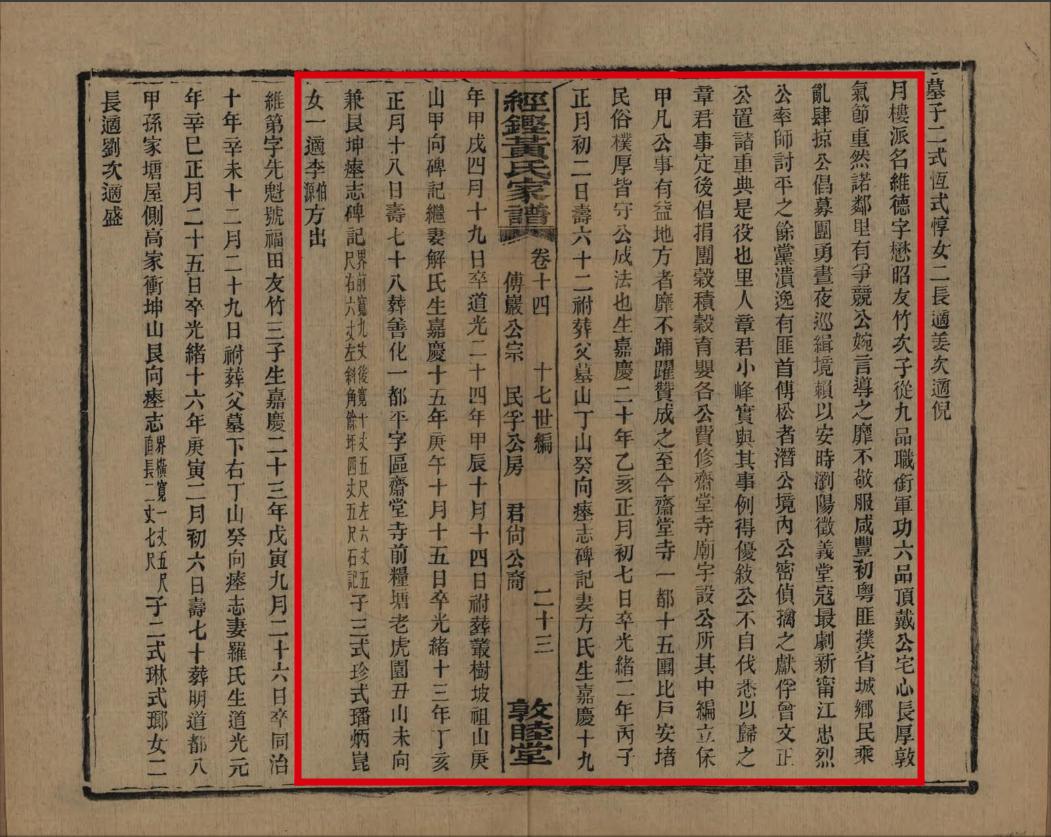 墓子二式恆式惇女二長適姜次適倪
月樓派名維德字懋昭友竹次子從九品職銜軍功六品頂戴公宅心長厚敦
氣節重然諾鄰里有爭競公婉言導之靡不敬服咸豐初粵匪撲省城鄉民乘
亂肆掠公倡募團勇晝夜巡緝境賴以安時瀏陽徵義堂寇最劇新甯江忠烈
公率師討平之餘黨潰逸有匪首傅松者潛公境內公密偵擒之獻俘曾文正
公置諸重典是役也里人章君小峰實與其事例得優敘公不自伐悉以歸之
章君事定後倡捐團穀積穀育嬰各公費修齋堂寺廟宇設公所其中編立保
甲凡公事有益地方者靡不踊躍贊成之至今齋堂寺一都十五團比戶安堵
民俗樸厚皆守公成法也生嘉慶二十年乙亥正月初七日卒光緒二年丙子
正月初二日壽六十二祔葬父墓山丁山癸向瘞志碑記妻方氏生嘉慶十九
經鏗黃氏家譜 卷十四 傅巖公宗 十七世編 民孚公房 君尙公裔 二十三 敦睦堂
年甲戌四月十九日卒道光二十四年甲辰十月十四日祔葬叢樹坡祖山庚
山甲向碑記繼妻解氏生嘉慶十五年庚午十月十五日卒光緒十三年丁亥
正月十八日壽七十八葬善化一都平字區齋堂寺前糧塘老虎園丑山未向
兼艮坤瘞志碑記界前寬九丈後寬十丈五尺左六丈五尺右六丈左斜角餘坪四丈五尺石記子三式珍式璠炳崑
女一適李伯源方出
維第字先魁號福田友竹三子生嘉慶二十三年戊寅九月二十六日卒同治
十年辛未十二月二十九日祔葬父墓下右丁山癸向瘞志妻羅氏生道光元
年辛巳正月二十五日卒光緒十六年庚寅二月初六日壽七十葬明道都八
甲孫家塘屋側高家衝坤山艮向瘞志界橫寬一丈五尺直長二丈七尺子二式琳式瑯女二
長適劉次適盛